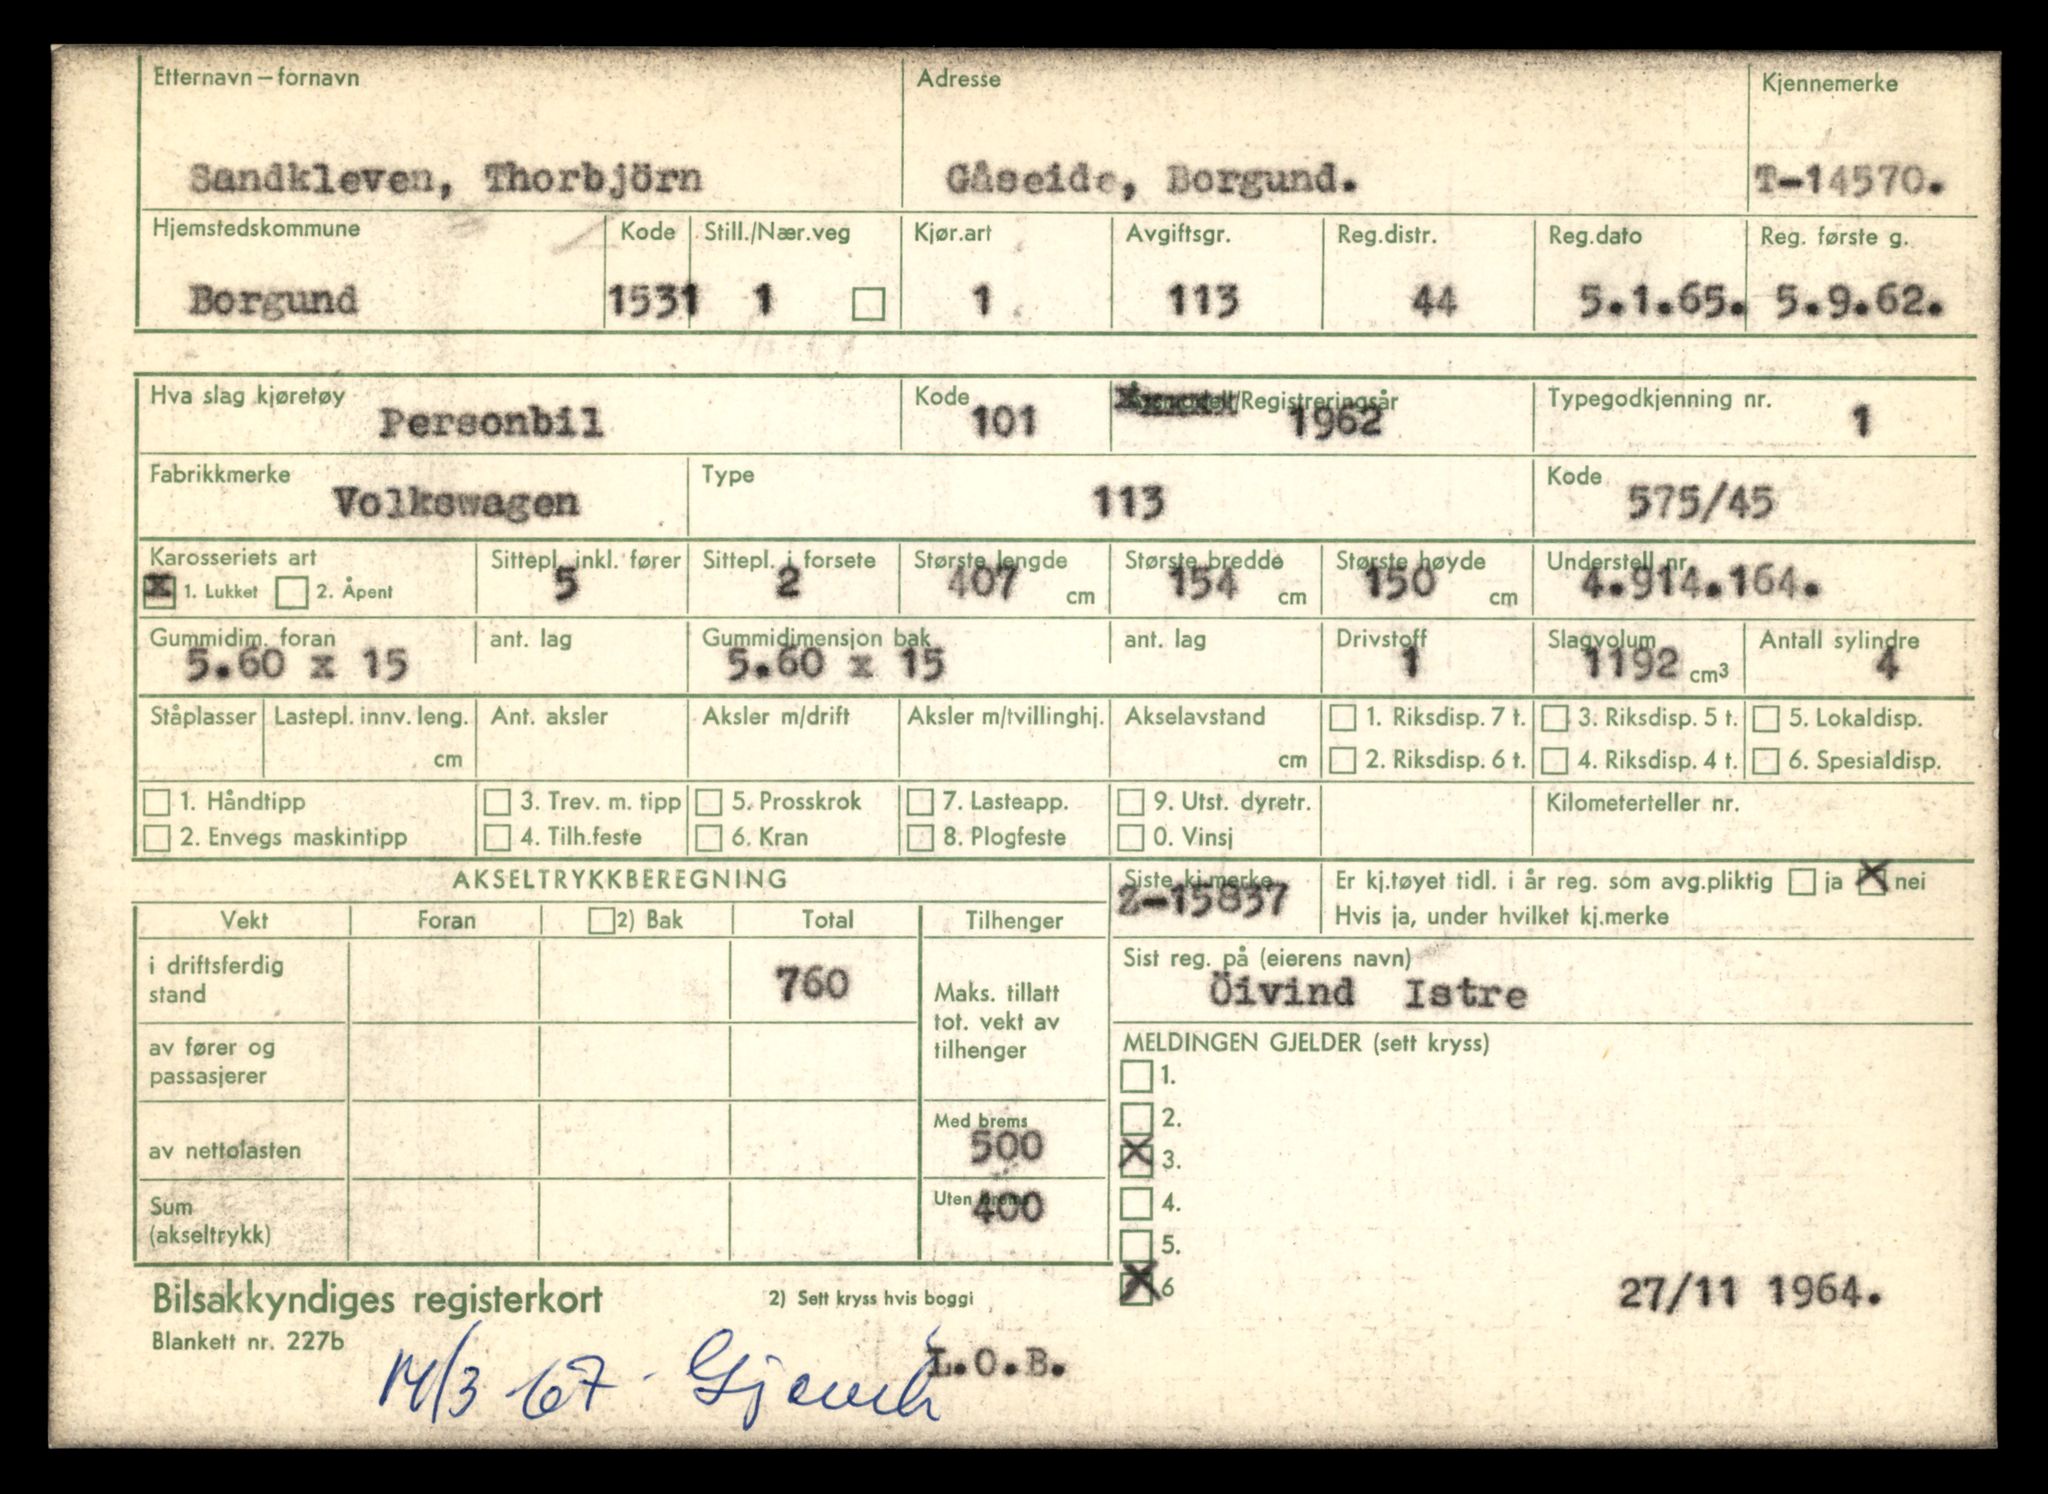 Etternavn – fornavn Adresse Kjennemerke
Sandkleven, Thorbjörn Gåseide, Borgund. T-14570.
Hjemstedskommune Kode Still./Nær.veg Kjør.art Avgiftsgr. Reg.distr. Reg.dato Reg. første g.
Borgund 1531 1 1 113 44 5.1.65. 5.9.62.
Hva slag kjøretøy Kode /Registreringsår Typegodkjenning nr.
Personbil 101 1962 1
Fabrikkmerke Type Kode
Volkswagen 113 575/45
Karosseriets art Sittepl. inkl. fører Sittepl. i forsete Største lengde Største bredde Største høyde Understell nr.
x 1. Lukket 2. Åpent 5 2 407 cm 154 cm 150 cm 4.914.164.
Gummidim. foran ant. lag Gummidimensjon bak ant. lag Drivstoff Slagvolum Antall sylindre
5.60 x 15 5.60 x 15 1 1192 cm³ 4
Ståplasser Lastepl. innv. leng. Ant. aksler Aksler m/drift Aksler m/tvillinghj. Akselavstand 1. Riksdisp. 7 t. 3. Riksdisp. 5 t. 5. Lokaldisp.
cm cm 2. Riksdisp. 6 t. 4. Riksdisp. 4 t. 6. Spesialdisp.
1. Håndtipp 3. Trev. m. tipp 5. Prosskrok 7. Lasteapp. 9. Utst. dyretr. Kilometerteller nr.
2. Envegs maskintipp 4. Tilh.feste 6. Kran 8. Plogfeste 0. Vinsj
AKSELTRYKKBEREGNING Siste kj.merke Er kj.tøyet tidl. i år reg. som avg.pliktig ja X nei
Z-15837 Hvis ja, under hvilket kj.merke
Vekt Foran 2) Bak Total Tilhenger
i driftsferdig stand 760 Sist reg. på (eierens navn)
Öivind Istre
Maks. tillatt tot. vekt av tilhenger
av fører og passasjerer MELDINGEN GJELDER (sett kryss)
1.
2.
av nettolasten Med brems 500 X 3.
Sum (akseltrykk) Uten brems 400 4.
5.
X 6
27/11 1964.
Bilsakkyndiges registerkort 2) Sett kryss hvis boggi
Blankett nr. 227b
L.O.B.